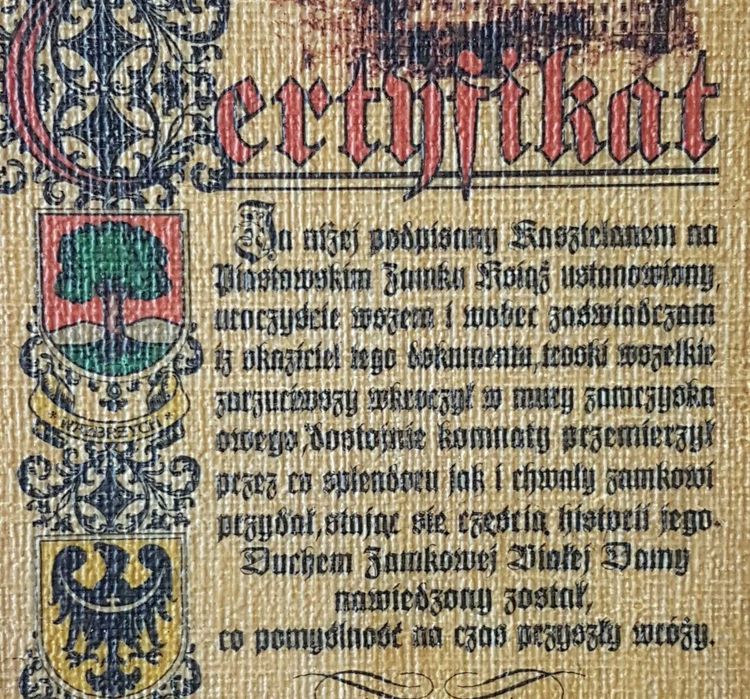 Certyfikat
Ja niżej podpisany Kasztelanem na
Piastowskim Zamku Książ ustanowiony,
uroczyście wszem i wobec zaświadczam
iż okaziciel tego dokumentu, troski wszelkie
zarzuciwszy wkroczył w mury zamczyska
owego, dostojnie komnaty przemierzył
przez co splendoru jak i chwały zamkowi
przydał, stając się częścią historii jego.
Duchem Zamkowej Białej Damy
nawiedzony został,
co pomyślność na czas przyszły wróży.
WAŁBRZYCH